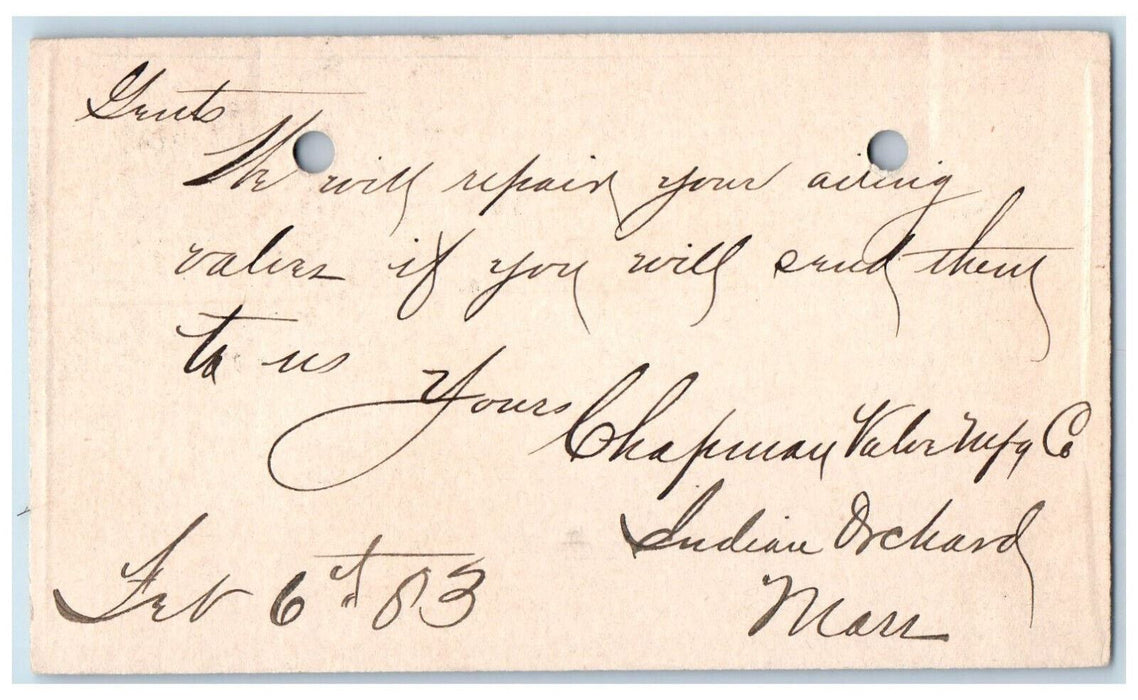 Gents
We will repair your ailing
valves if you will send them
to us
Yours
Chapman Valve Mfg Co
Indian Orchard
Mass
Feb 6th 83